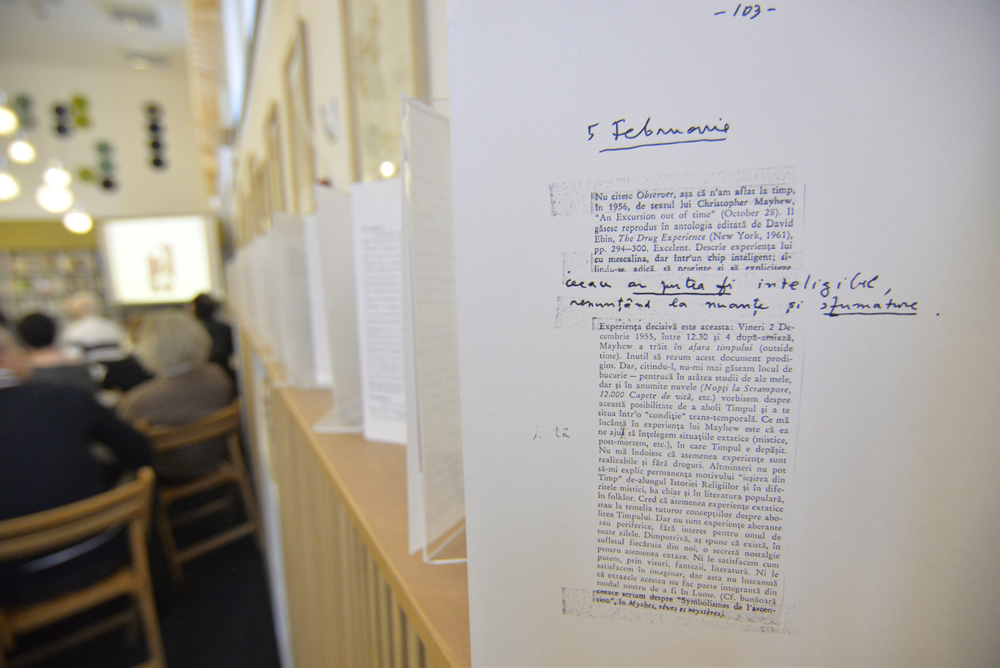 -103-
5 Februarie
Nu citesc Observer, aşa că n'am aflat la timp,
în 1956, de textul lui Christopher Mayhew,
"An Excursion out of time" (October 28). Il
găsesc reprodus în antologia editată de David
Ebin, The Drug Experience (New York, 1961),
pp. 294-300. Excelent. Descrie experienţa lui
cu mescalina, dar într'un chip inteligent; si-
lindu-se, adică, să prezinte şi să expliciteze
ceeace ar putea fi inteligibil,
renunţând la nuanţe şi sfumature.
Experienţa decisivă este aceasta: Vineri 2 De-
cembrie 1955, între 12.30 şi 4 după-amiaza,
Mayhew a trăit în afara timpului (outside
time). Inutil să rezum acest document prodi-
gios. Dar, citindu-l, nu-mi mai găseam locul de
bucurie — pentrucă în atâtea studii de ale mele,
dar şi în anumite nuvele (Nopţi la Serampore,
12.000 Capete de vită, etc.) vorbisem despre
această posibilitate de a aboli Timpul şi a te
situa într'o "condiţie" trans-temporală. Ce mă
încântă în experienţa lui Mayhew este că ea
ne ajută să înţelegem situaţiile extatice (mistice,
post-mortem, etc.), în care Timpul e depăşit.
Nu mă îndoiesc că asemenea experienţe sunt
realizabile şi fără droguri. Altminteri nu pot
să-mi explic permanenţa motivului "ieşirea din
Timp" de-alungul Istoriei Religiilor şi în dife-
ritele mistici, ba chiar şi în literatura populară,
în folklor. Cred că asemenea experienţe extatice
stau la temelia tuturor concepţiilor despre abo-
lirea Timpului. Dar nu sunt experienţe aberante
sau periferice, fără interes pentru omul de
toate zilele. Dimpotrivă, aş spune că există, în
sufletul fiecăruia din noi, o secretă nostalgie
pentru asemenea extaze. Ni le satisfacem cum
putem, prin visuri, fantezii, literatură. Ni le
satisfacem în imaginar, dar asta nu înseamnă
că extazele acestea nu fac parte integrantă din
modul nostru de a fi în Lume. (Cf. bunăoară
ceeace scriam despre "Symbolismes de l'ascen-
sion", în Mythes, rêves et mystères).